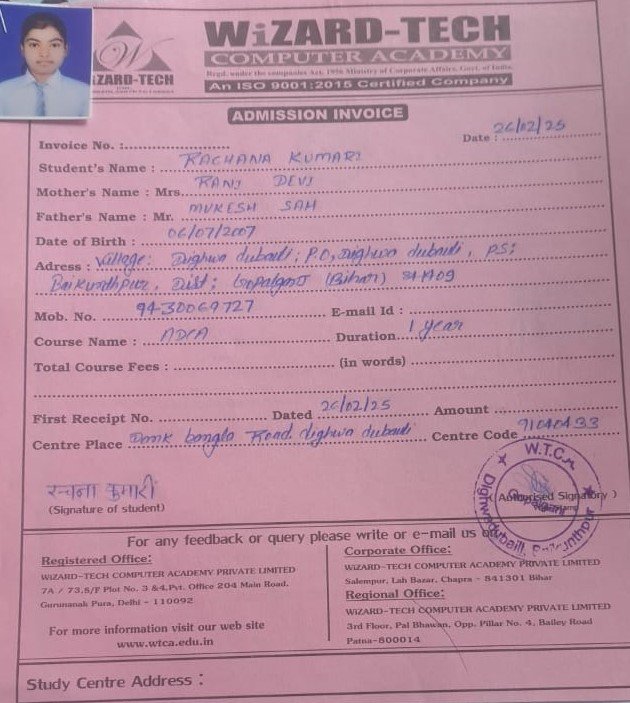 WiZARD-TECH
COMPUTER ACADEMY
Regd. under the companies Act, 1956 Ministry of Corporate Affairs, Govt. of India.
An ISO 9001:2015 Certified Company
WiZARD-TECH
ADMISSION INVOICE
Invoice No. :........................ Date : 26/02/25
Student's Name : RACHANA KUMARI
Mother's Name : Mrs. RANI DEVI
Father's Name : Mr. MUKESH SAH
Date of Birth : 06/07/2007
Adress : Village: Dighwa dubauli, P.O, Dighwa dubauli, P.S:
Baikunthpur, Dist: Gopalganj (Bihar) 841409
Mob. No. 9430069727 E-mail Id :
Course Name : ADCA Duration 1 year
Total Course Fees : (in words)
First Receipt No. Dated 26/02/25 Amount
Centre Place Damk bangla Road dighwa dubauli Centre Code 91040433
रचना कुमारी
(Signature of student)
W.T.C.A
Gopalganj
(Authorised Signatory)
For any feedback or query please write or e-mail us on
Registered Office:
WiZARD-TECH COMPUTER ACADEMY PRIVATE LIMITED
7A / 73,S/F Plot No. 3 &4,Pvt. Office 204 Main Road,
Gurunanak Pura, Delhi - 110092
For more information visit our web site
www.wtca.edu.in
Corporate Office:
WiZARD-TECH COMPUTER ACADEMY PRIVATE LIMITED
Salempur, Lah Bazar, Chapra - 841301 Bihar
Regional Office:
WiZARD-TECH COMPUTER ACADEMY PRIVATE LIMITED
3rd Floor, Pal Bhawan, Opp. Pillar No. 4, Bailey Road
Patna-800014
Study Centre Address :